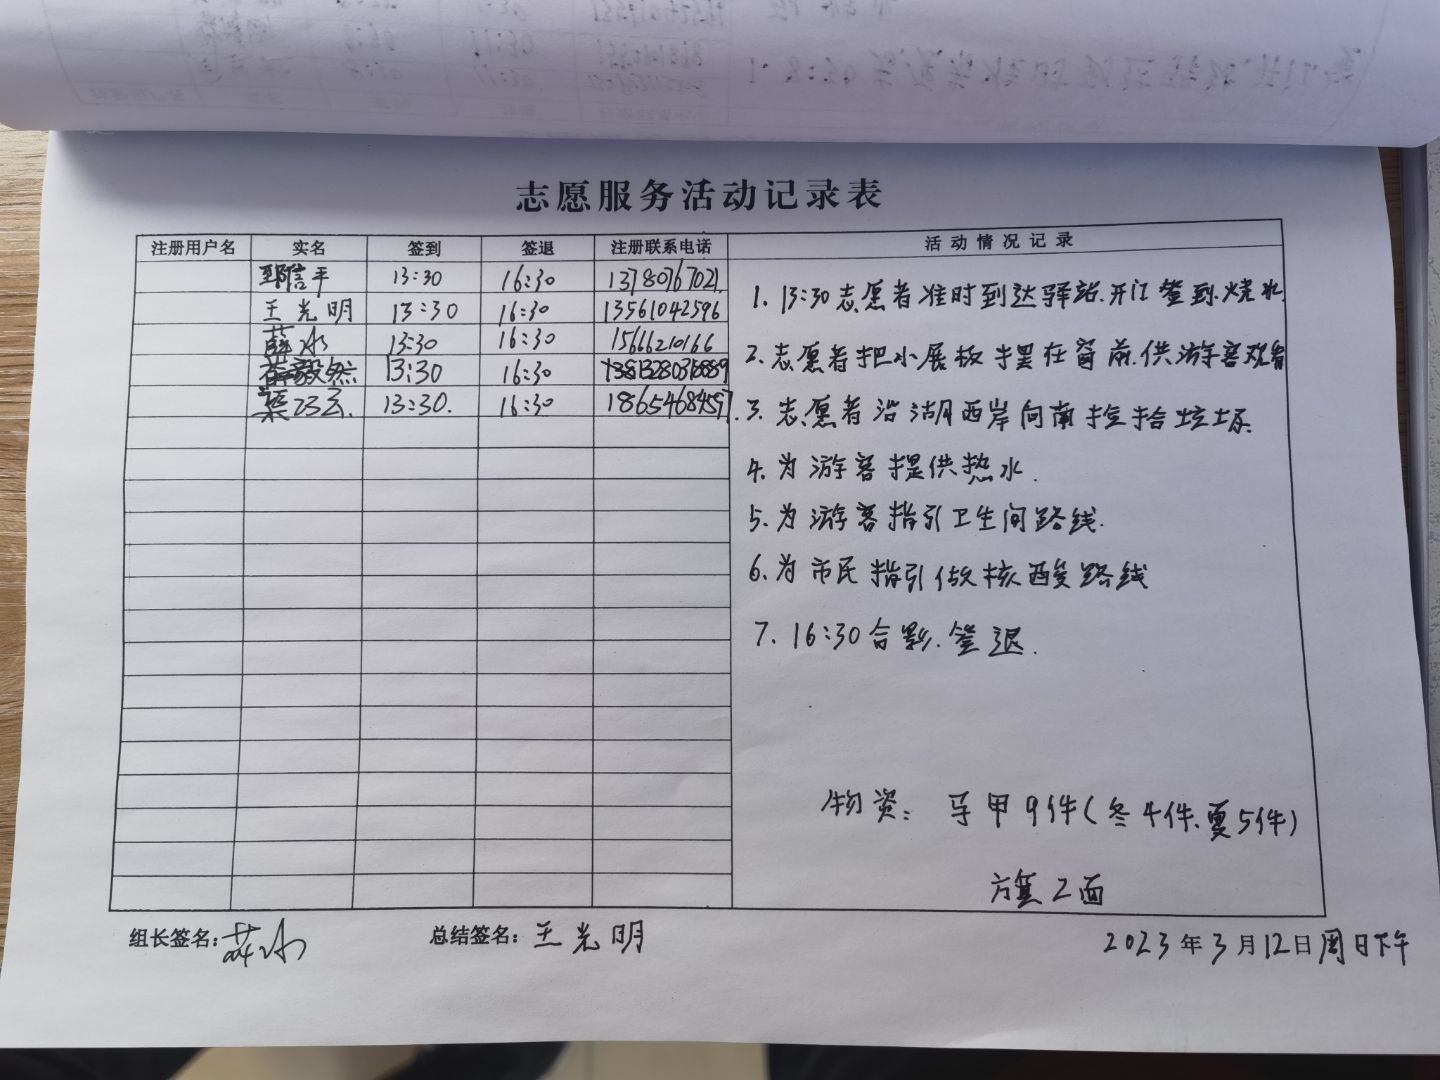 志愿服务活动记录表
注册用户名 实名 签到 签退 注册联系电话 活动情况记录
信平 13:30 16:30 13780767021
王光明 13:30 16:30 13561042596
薛冰 13:30 16:30 15666210166
毅然 13:30 16:30
梁巧云 13:30. 16:30 18654684597
1. 13:30志愿者准时到达驿站.开江签到.烧水
2.志愿者把小展板摆在窗前.供游客观看
3.志愿者沿湖西岸向南捡拾垃圾.
4.为游客提供热水.
5.为游客指引卫生间路线.
6.为市民指引做核酸路线
7. 16:30合影.签退.
物资: 马甲9件(冬4件.夏5件)
方篷2面
组长签名: 薛冰 总结签名: 王光明 2023年3月12日周日下午